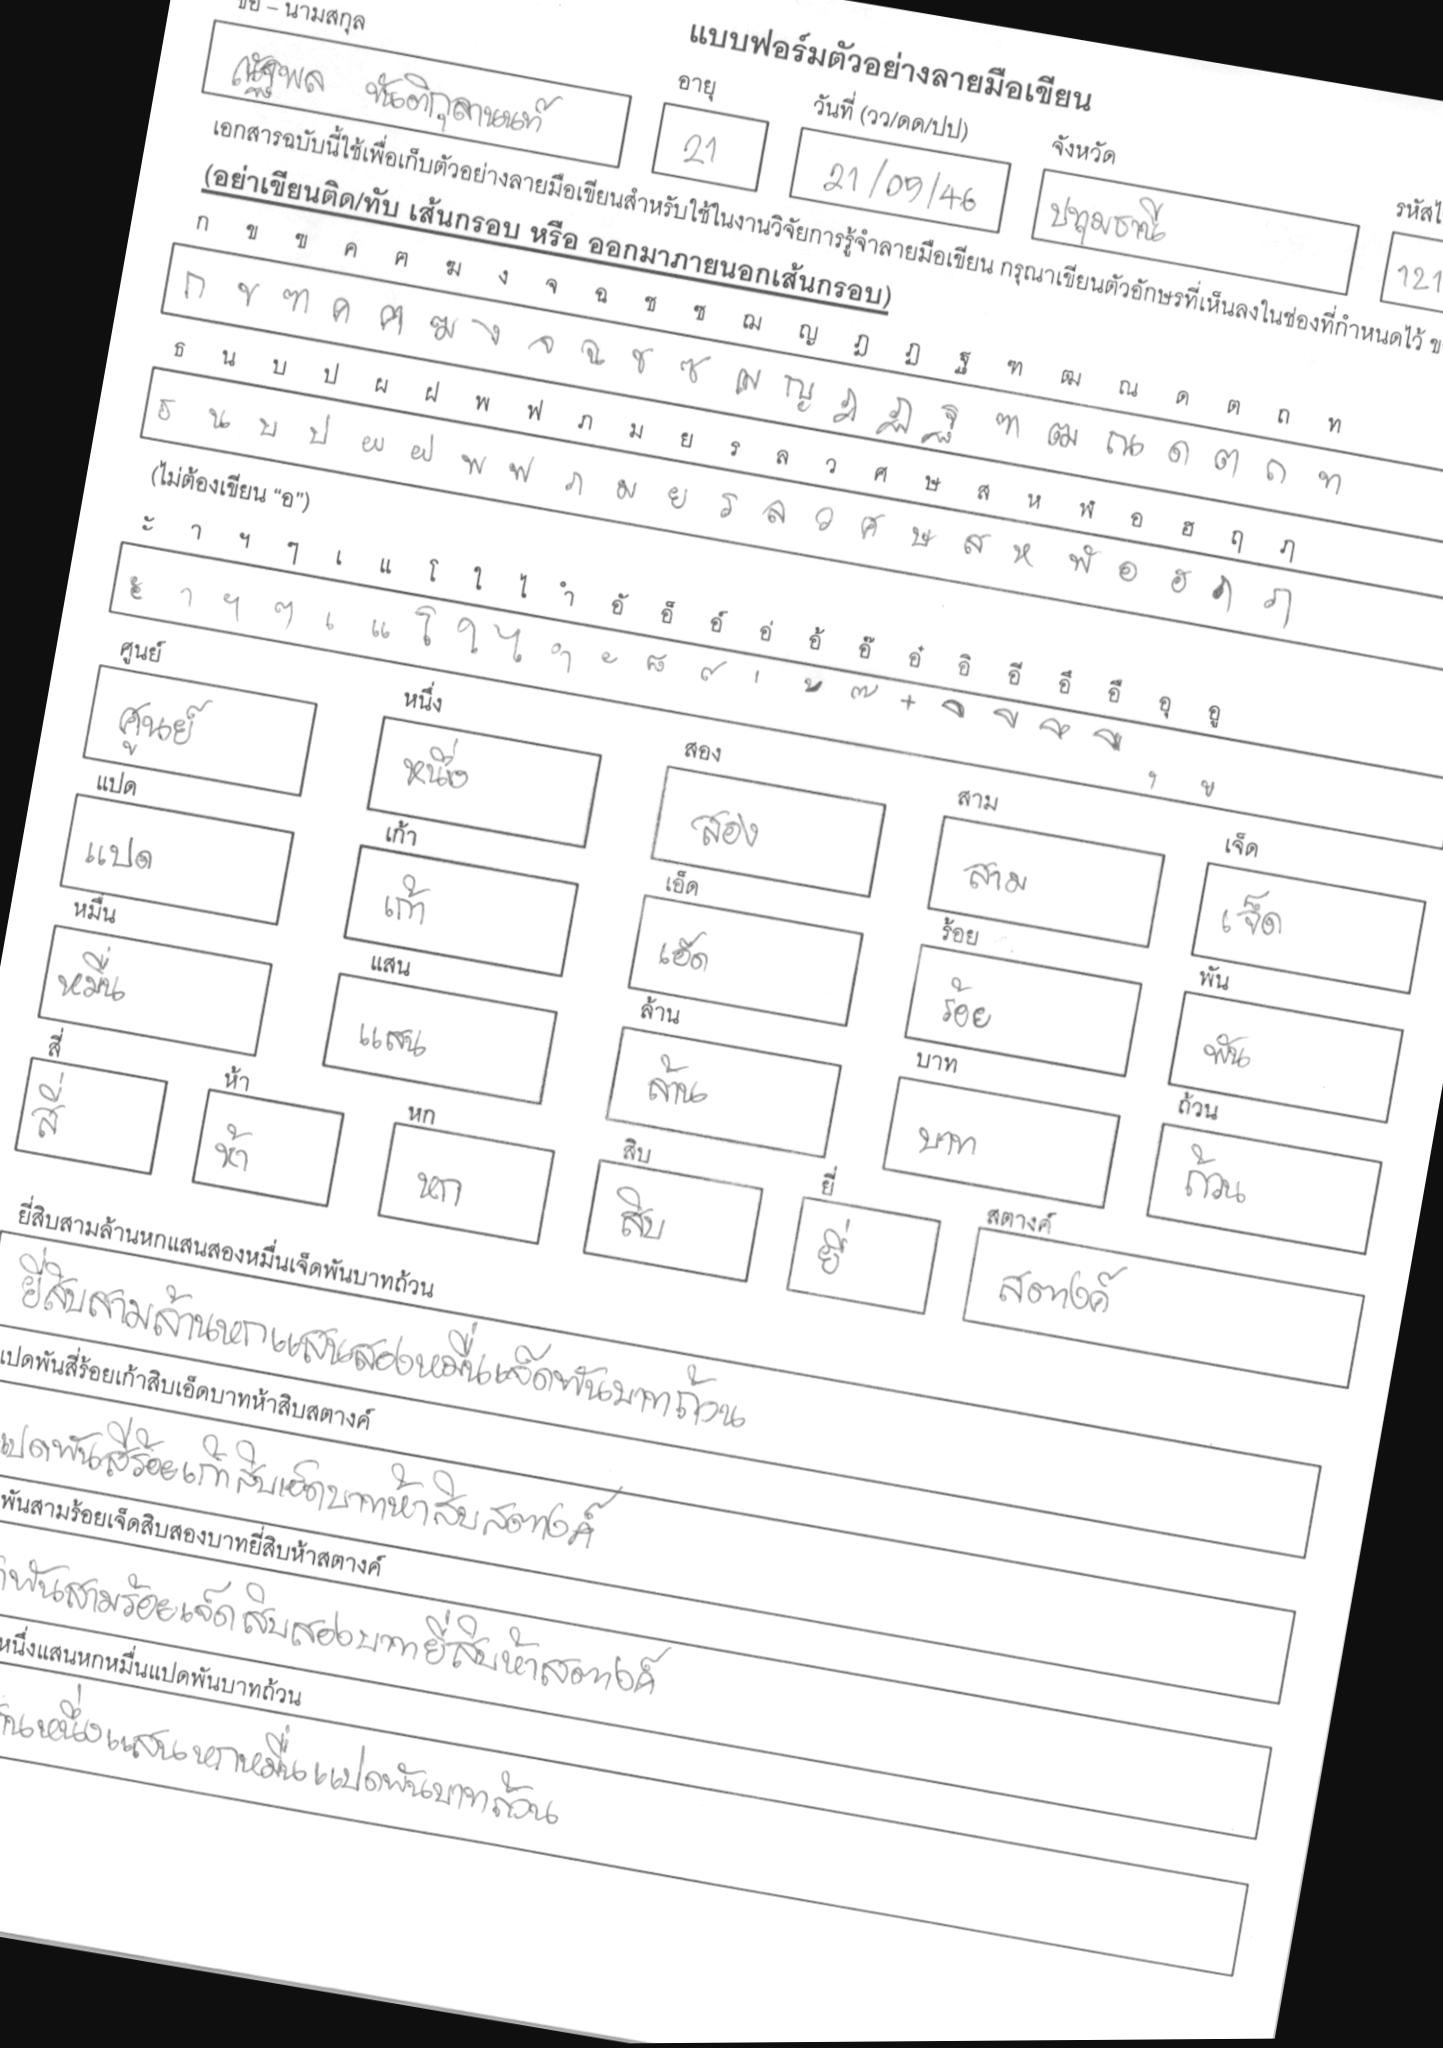 แบบฟอร์มตัวอย่างลายมือเขียน
ชื่อ – นามสกุล อายุ วันที่ (วว/ดด/ปป) จังหวัด
ณัฐพล 21 21/09/46 ปทุมธานี 121
เอกสารฉบับนี้ใช้เพื่อเก็บตัวอย่างลายมือเขียนสำหรับใช้ในงานวิจัยการรู้จำลายมือเขียน กรุณาเขียนตัวอักษรที่เห็นลงในช่องที่กำหนดไว้
(อย่าเขียนติด/ทับ เส้นกรอบ หรือ ออกมาภายนอกเส้นกรอบ)
ก ข ฃ ค ฅ ฆ ง จ ฉ ช ซ ฌ ญ ฎ ฏ ฐ ฑ ฒ ณ ด ต ถ ท
ก ข ฃ ค ฅ ฆ ง จ ฉ ช ซ ฌ ญ ฎ ฏ ฐ ฑ ฒ ณ ด ต ถ ท
ธ น บ ป ผ ฝ พ ฟ ภ ม ย ร ล ว ศ ษ ส ห ฬ อ ฮ ฤ ฦ
ธ น บ ป ผ ฝ พ ฟ ภ ม ย ร ล ว ศ ษ ส ห ฬ อ ฮ ฤ ฦ
(ไม่ต้องเขียน “อ”)
ะ า ฯ ๆ เ แ โ ใ ไ ำ อั อ็ อ์ อ่ อ้ อ๊ อ๋ อิ อี อึ อื อุ อู
ะ า ฯ ๆ เ แ โ ใ ไ ำ ั ็ ์ ่ ้ ๊ ๋ ิ ี ึ ื ุ ู
ศูนย์ หนึ่ง สอง สาม เจ็ด
ศูนย์ หนึ่ง สอง สาม เจ็ด
แปด เก้า เอ็ด ร้อย พัน
แปด เก้า เอ็ด ร้อย พัน
หมื่น แสน ล้าน บาท ถ้วน
หมื่น แสน ล้าน บาท ถ้วน
สี่ ห้า หก สิบ ยี่ สตางค์
สี่ ห้า หก สิบ ยี่ สตางค์
ยี่สิบสามล้านหกแสนสองหมื่นเจ็ดพันบาทถ้วน
ยี่สิบสามล้านหกแสนสองหมื่นเจ็ดพันบาทถ้วน
แปดพันสี่ร้อยเก้าสิบเอ็ดบาทห้าสิบสตางค์
แปดพันสี่ร้อยเก้าสิบเอ็ดบาทห้าสิบสตางค์
พันสามร้อยเจ็ดสิบสองบาทยี่สิบห้าสตางค์
พันสามร้อยเจ็ดสิบสองบาทยี่สิบห้าสตางค์
หนึ่งแสนหกหมื่นแปดพันบาทถ้วน
หนึ่งแสนหกหมื่นแปดพันบาทถ้วน